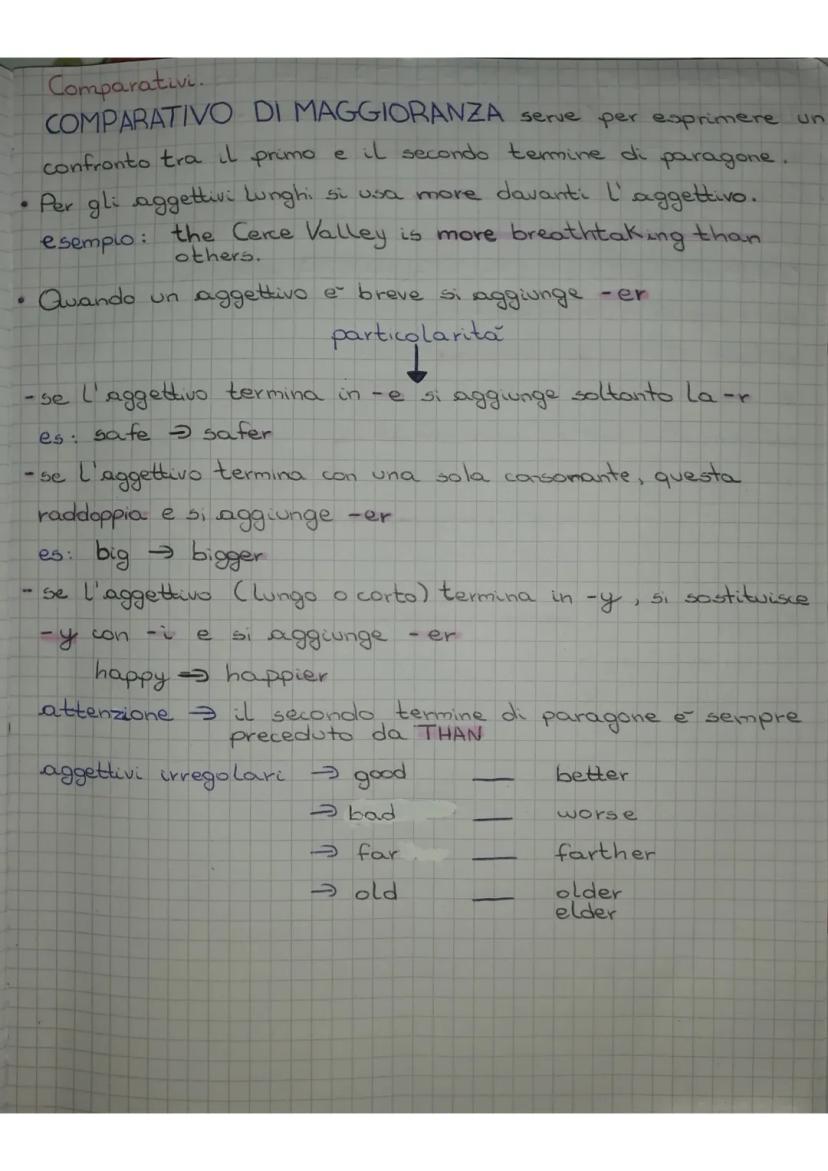 Comparativi.
COMPARATIVO DI MAGGIORANZA serve per esprimere un
confronto tra il primo e il secondo termine di paragone.
• Per gli aggettivi lunghi si usa more davanti l'aggettivo.
esempio: the Cerce Valley is more breathtaking than
others.
• Quando un aggettivo è breve si aggiunge -er
particolarità
↓
- se l'aggettivo termina in -e si aggiunge soltanto la -r
es: safe → safer
- se l'aggettivo termina con una sola consonante, questa
raddoppia e si aggiunge -er
es: big → bigger
- se l'aggettivo (lungo o corto) termina in -y, si sostituisce
-y con -i e si aggiunge -er
happy → happier
attenzione → il secondo termine di paragone è sempre
preceduto da THAN
aggettivi irregolari → good — better
→ bad — worse
→ far — farther
→ old — older
elder